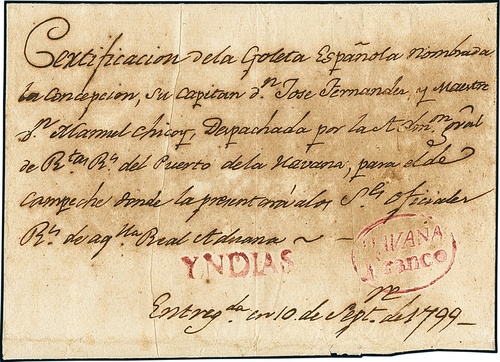 Certificacion de la Goleta Española nombrada
la Concepcion, su Capitan d.n Jose Fernandez, y Maestre
D.n Manuel Chicoy, Despachada por la Adm.n gral
de R.tas R.s del Puerto de la Havana, para el de
Campeche donde la presentará a los S.res Oficiales
R.s de aq.lla Real Aduana ~ —
YNDIAS
HAVANA
Franco
Entreg.da en 10. de Sept.re de 1799_